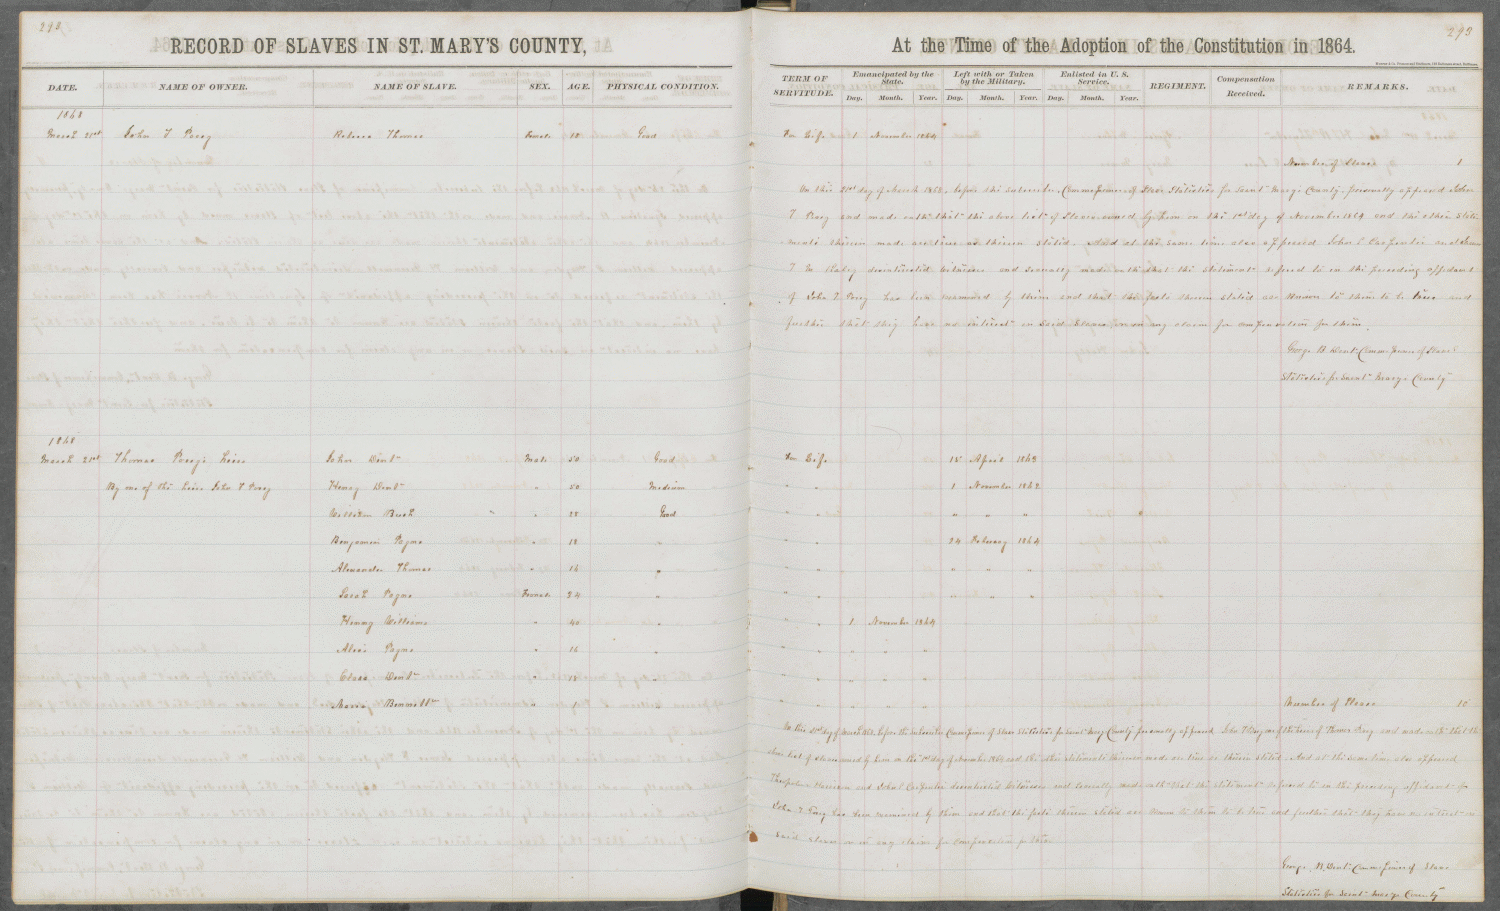 293
RECORD OF SLAVES IN ST. MARY'S COUNTY,
DATE. NAME OF OWNER. NAME OF SLAVE. SEX. AGE. PHYSICAL CONDITION.
1868
March 21st John T Posey Rebecca Thomas Female 18 Good
1868
March 21st Thomas Posey's Heirs John Dent Male 50 Good
By one of the heirs John T Posey Henry Dent " 50 Medium
William Bush " 28 Good
Benjamin Payne " 18 "
Alexander Thomas " 16 "
Sarah Payne Female 24 "
Henny Williams " 40 "
Payne " 16 "
Eliza Dent "
Maria "
293
At the Time of the Adoption of the Constitution in 1864.
TERM OF SERVITUDE. Emancipated by the State. Left with or Taken by the Military. Enlisted in U. S. Service. REGIMENT. Compensation Received. REMARKS.
Day. Month. Year. Day. Month. Year. Day. Month. Year.
For Life 1 November 1864
Number of Slaves 1
On this 21st day of March 1868, before the subscriber, Commissioner of Slave Statistics for Saint Mary's County personally appeared John
T Posey and made oath that the above list of Slaves owned by him on the 1st day of November 1864 and the other state
ments therein made are true as therein stated. And at the same time also appeared John E Carpenter and
T disinterested witnesses and severally made oath that the statement referred to in the preceding affidavit
of John T Posey has been examined by them and that the facts therein stated are known to them to be true and
further that they have no interest in said Slaves or in any claim for compensation for them.
George B Dent Commissioner of Slave
Statistics for Saint Mary's County
For Life 15 April 1863
" " 1 November 1862
" " " " "
" " 24 February 1864
" " " " "
" " " " "
" " 1 November 1864
" " " " "
" " " " "
" " " " " Number of Slaves 10
On this 21st day of March 1868, before the subscriber Commissioner of Slave Statistics for Saint Mary's County personally appeared John T Posey one of the heirs of Thomas Posey and made oath that the
above list of slaves owned by him on the 1st day of November 1864 and the other statements therein made are true as therein stated. And at the same time also appeared
Harrison and John E Carpenter disinterested witnesses and severally made oath that the statement referred to in the preceding affidavit of
John T Posey has been examined by them and that the facts therein stated are known to them to be true and further that they have no interest in
said slaves or in any claim for compensation for them.
George B Dent Commissioner of Slave
Statistics for Saint Mary's County